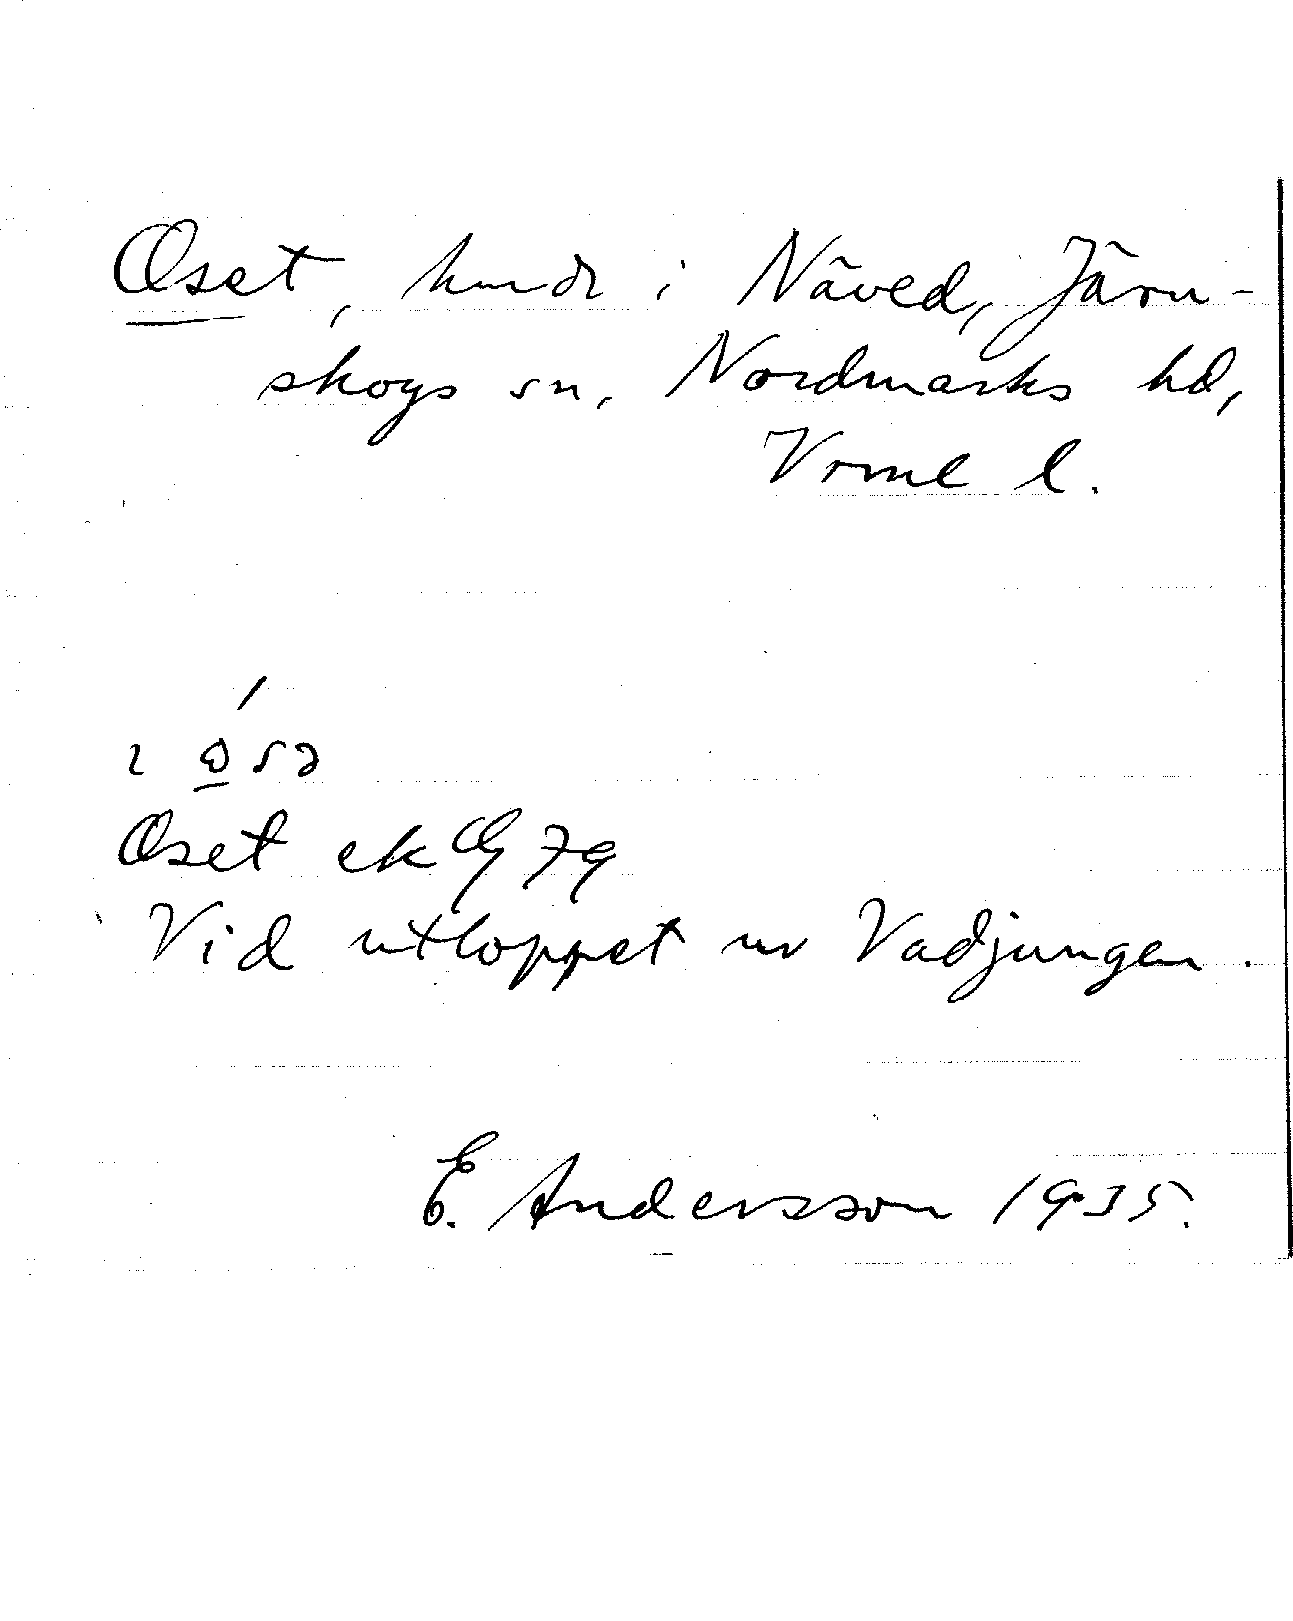 Oset, hmdr i Näved, Järn-
skogs sn, Nordmarks hd,
Vrml l.
Oset ek
Vid utloppet ur Vadjungen.
E. Andersson 1935.